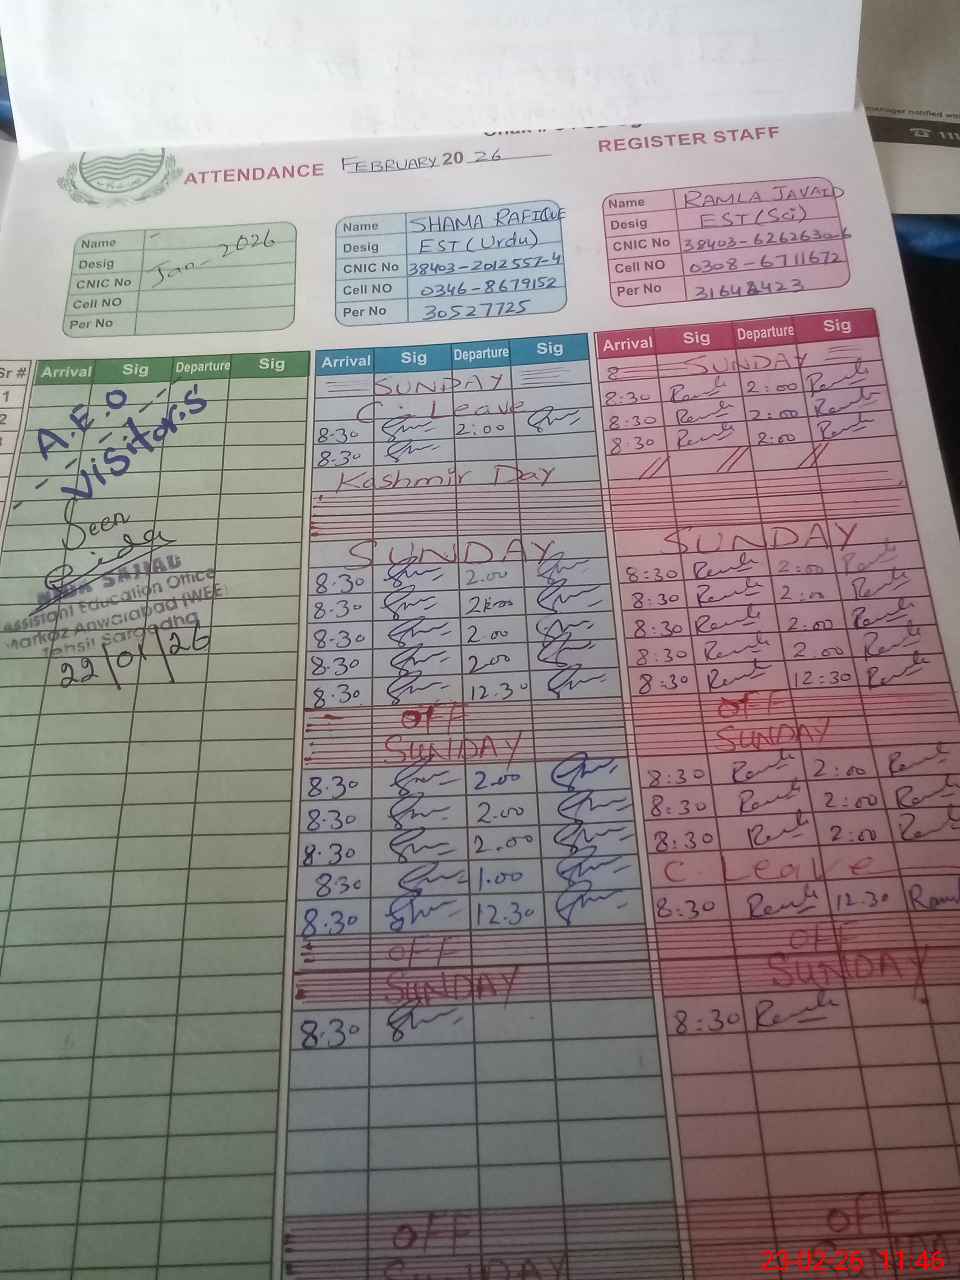 manager notified with
☎ 111
ATTENDANCE FEBRUARY 20 26 REGISTER STAFF
Name -
Desig Jan- 2026
CNIC No
Cell NO
Per No
Name SHAMA RAFIQUE
Desig EST (Urdu)
CNIC No 38403-2012557-4
Cell NO 0346-8679152
Per No 30527725
Name RAMLA JAVAID
Desig EST (Sci)
CNIC No 38403-6262630-6
Cell NO 0308-6711672
Per No
Sr # Arrival Sig Departure Sig
1
2
3
A.E.O
Visitor.s
Seen
Assistant Education Office
Markaz Anwarabad (WEE)
Tehsil Sargodha
22/01/26
Arrival Sig Departure Sig
SUNDAY
C. Leave
8.30 2:00
8.30
Kashmir Day
SUNDAY
8.30 2.00
8.30 2:00
8.30 2.00
8.30 2.00
8.30 12.30
OFF
SUNDAY
8.30 2.00
8.30 2.00
8.30 2.00
8.30 1.00
8.30 12.30
OFF
SUNDAY
8.30
OFF
SUNDAY
Arrival Sig Departure Sig
SUNDAY
8:30 Ramla 2:00 Ramla
8:30 Ramla 2:00 Ramla
8:30 Ramla 2:00 Ramla
// // //
SUNDAY
8:30 Ramla 2:00 Ramla
8:30 Ramla 2:00 Ramla
8:30 Ramla 2:00 Ramla
8:30 Ramla 2:00 Ramla
8:30 Ramla 12:30 Ramla
OFF
SUNDAY
8:30 Ramla 2:00 Ramla
8:30 Ramla 2:00 Ramla
8:30 Ramla 2:00 Ramla
C. Leave
8:30 Ramla 12.30 Raml
OFF
SUNDAY
8:30 Ramla
OFF
23-02-26 11:46